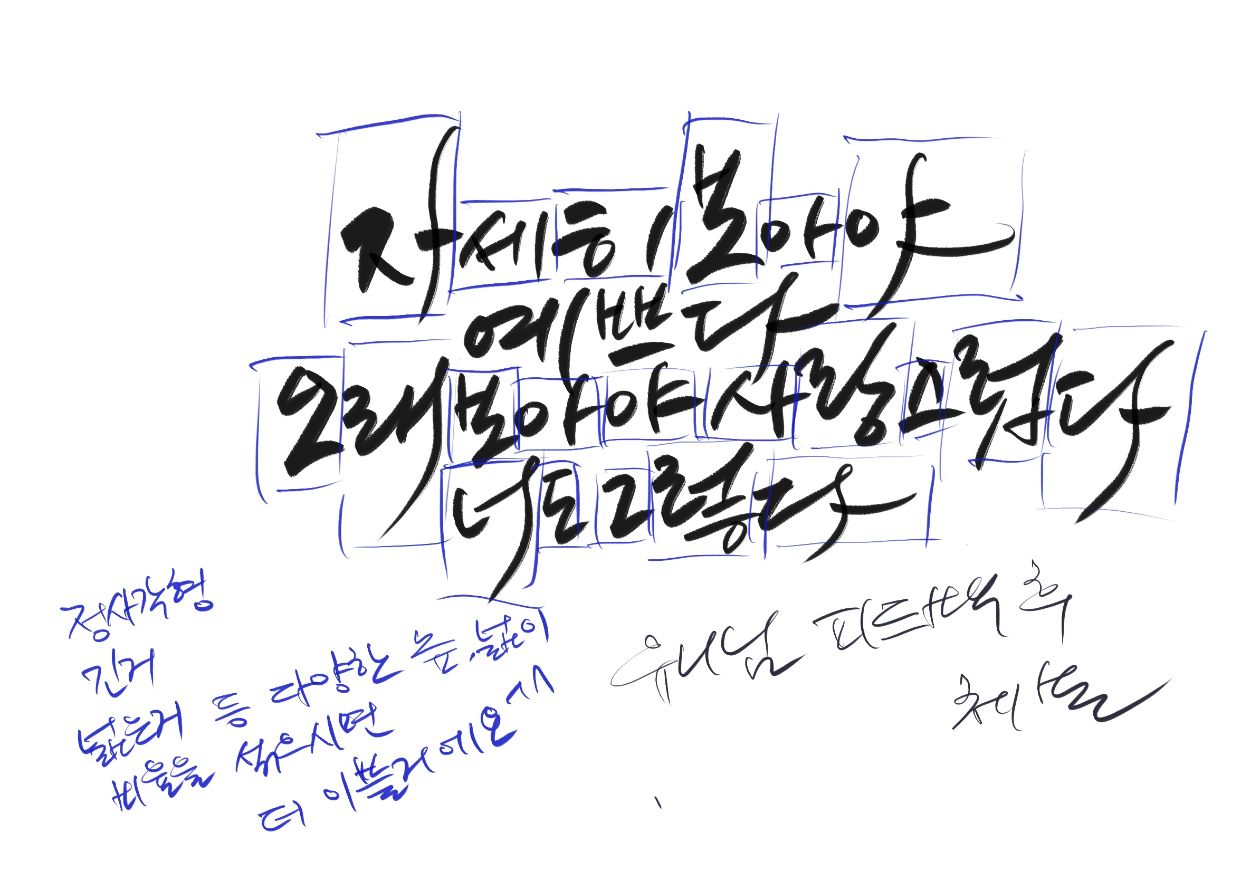 자세히 보아야
예쁘다
오래보아야 사랑스럽다
너도 그렇다
정사각형
긴거
넓은거 등 다양한 높,넓이
비율을 섞으시면
더 이쁠거에요^^
유니님 피드백 후